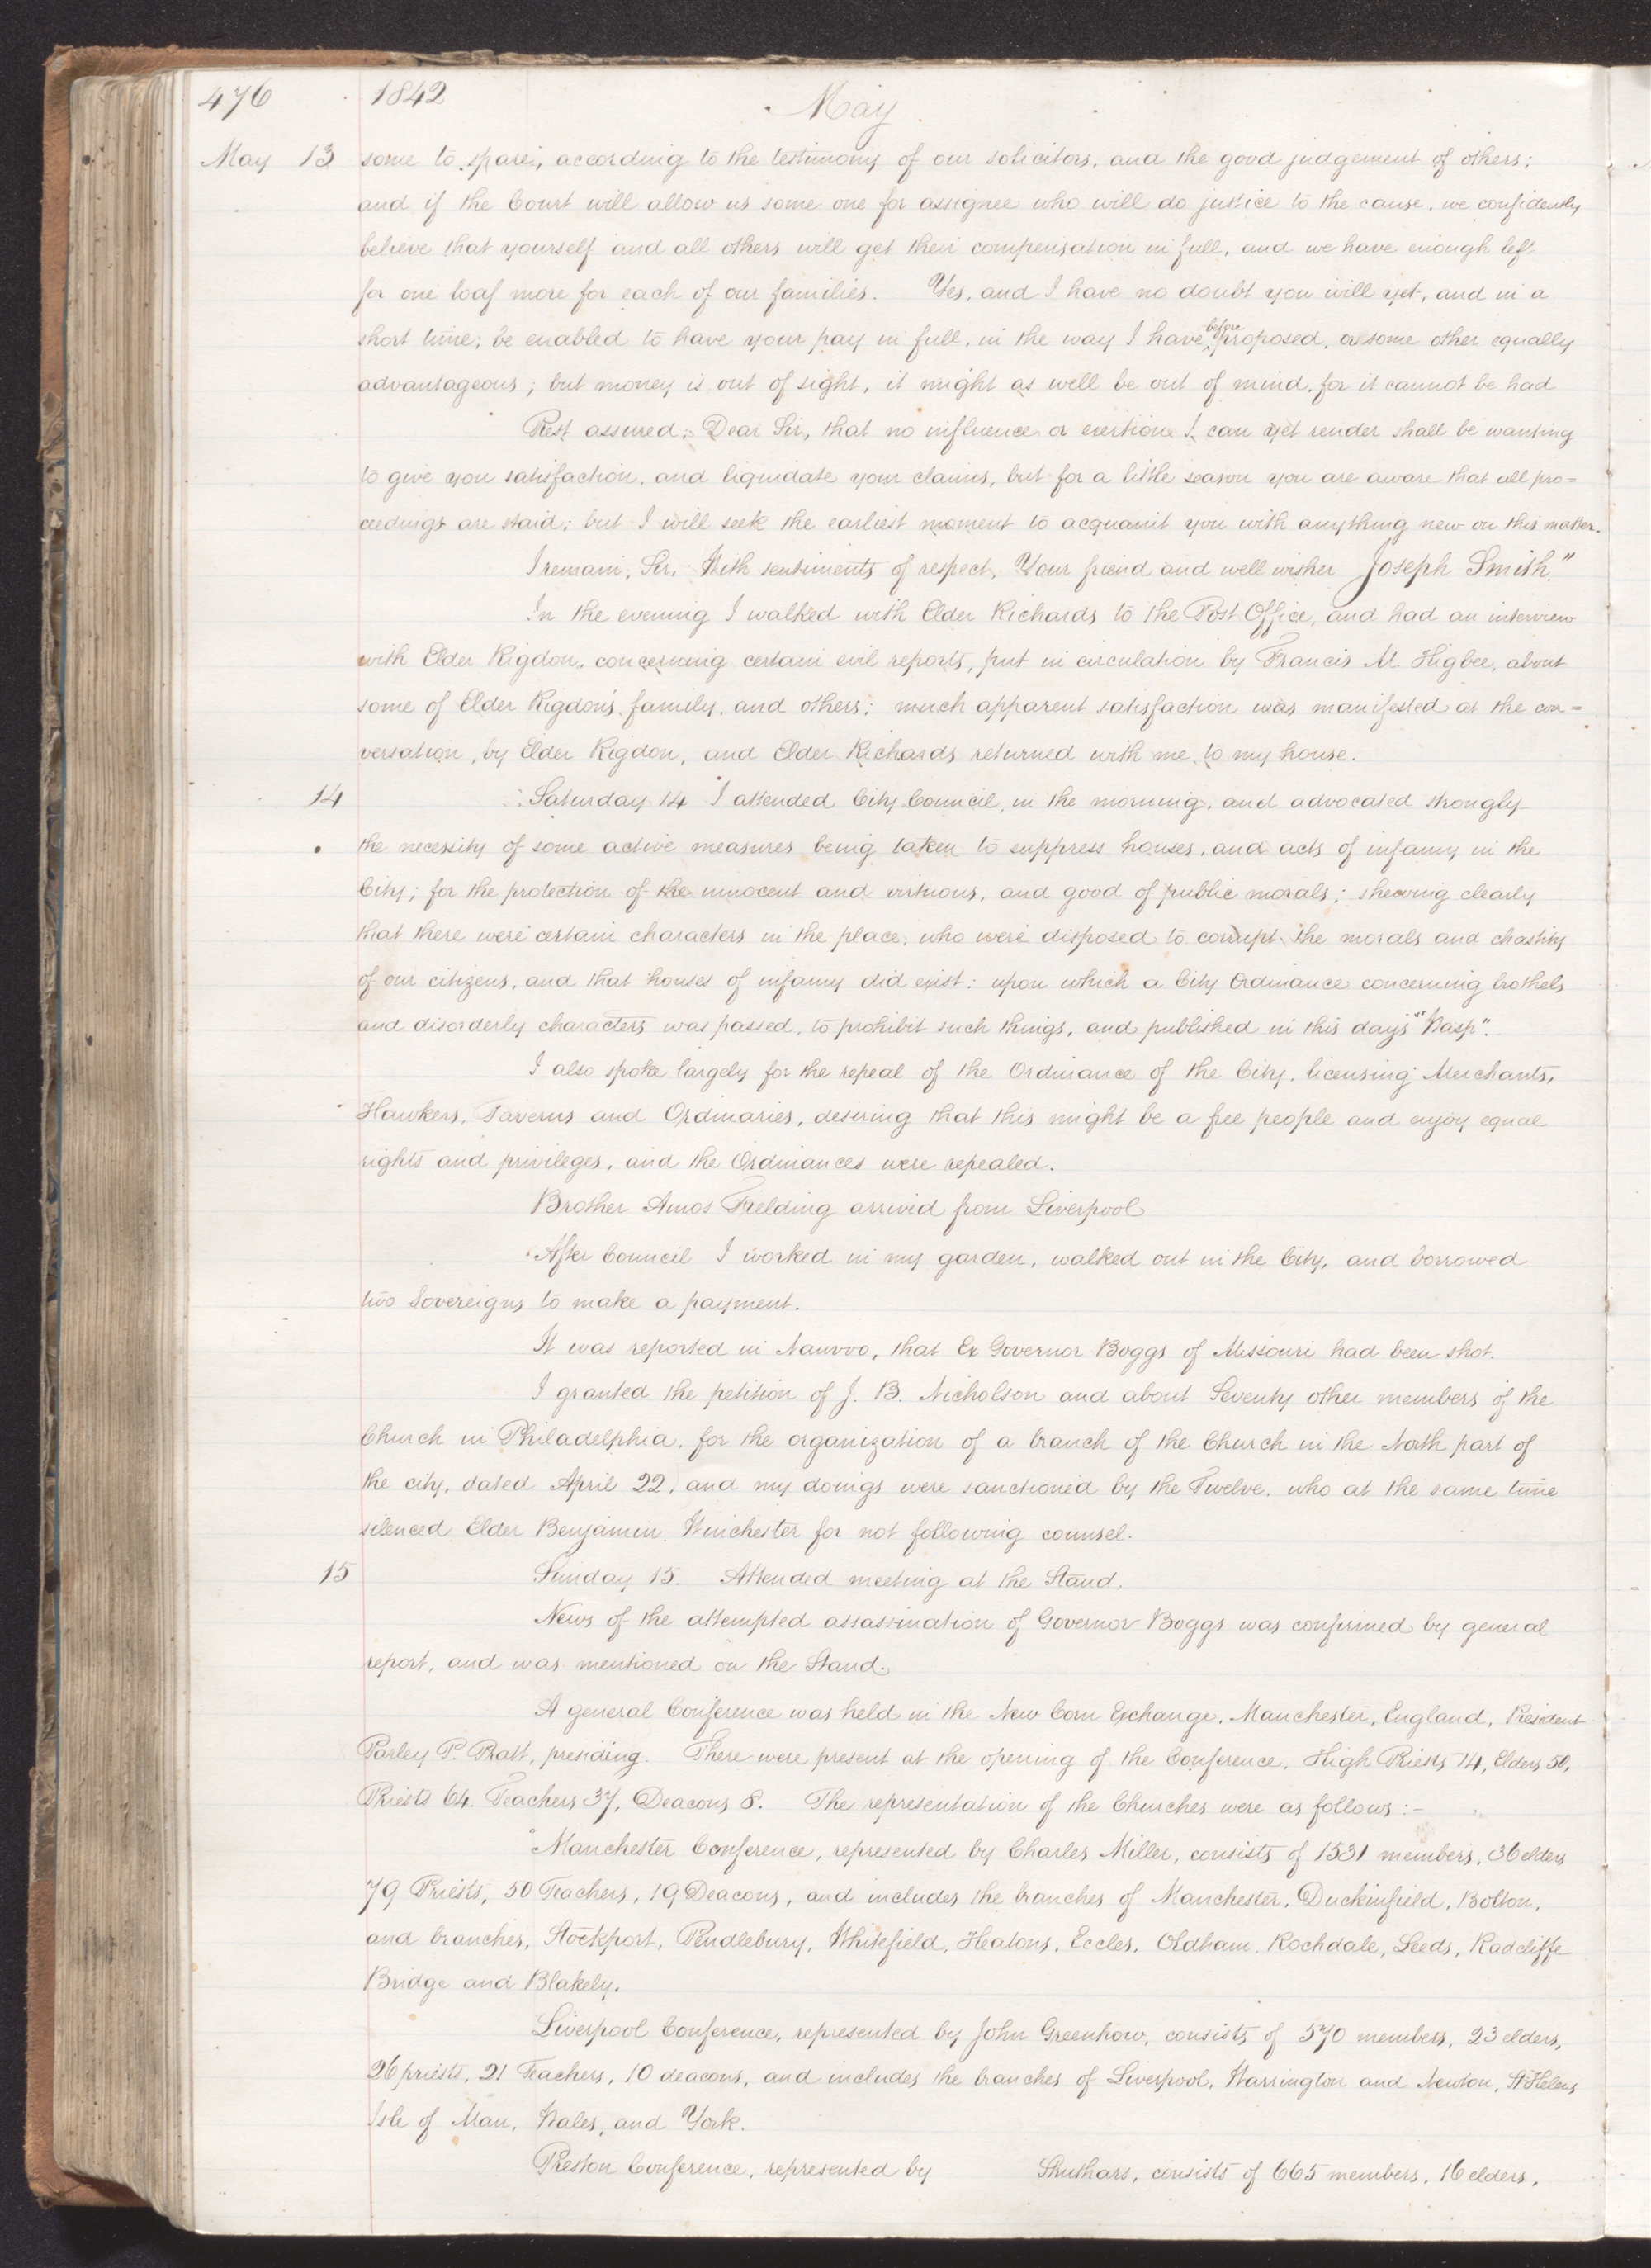 476 1842 May
May 13 some to spare, according to the testimony of our solicitors, and the good judgement of others;
and if the Court will allow us some one for assignee who will do justice to the cause, we confidently
believe that yourself and all others will get their compensation in full, and we have enough left
for one loaf more for each of our families. Yes, and I have no doubt you will yet, and in a
short time; be enabled to have your pay in full, in the way I have before proposed, or some other equally
advantageous; but money is out of sight, it might as well be out of mind, for it cannot be had
Rest assured, Dear Sir, that no influence or exertion I can yet render shall be wanting
to give you satisfaction, and liquidate your claims, but for a little season you are aware that all pro=
ceedings are staid; but I will seek the earliest moment to acquaint you with anything new on this matter.
I remain, Sir, With sentiments of respect, Your friend and well wisher Joseph Smith."
In the evening I walked with Elder Richards to the Post Office, and had an interview
with Elder Rigdon, concerning certain evil reports, put in circulation by Francis M. Higbee, about
some of Elder Rigdon's family, and others; much apparent satisfaction was manifested at the con=
versation, by Elder Rigdon, and Elder Richards returned with me to my house.
14 Saturday 14 I attended City Council, in the morning, and advocated strongly
the necessity of some active measures being taken to suppress houses, and acts of infamy in the
City; for the protection of the innocent and virtuous, and good of public morals; shewing clearly
that there were certain characters in the place, who were disposed to corrupt the morals and chastity
of our citizens, and that houses of infamy did exist: upon which a City Ordinance concerning brothels
and disorderly characters was passed, to prohibit such things, and published in this day's "Wasp".
I also spoke largely for the repeal of the Ordinance of the City, licensing Merchants,
Hawkers, Taverns and Ordinaries, desiring that this might be a free people and enjoy equal
rights and privileges, and the Ordinances were repealed.
Brother Amos Fielding arrived from Liverpool
After Council I worked in my garden, walked out in the City, and borrowed
two Sovereigns to make a payment.
It was reported in Nauvoo, that Ex Governor Boggs of Missouri had been shot.
I granted the petition of J. B. Nicholson and about Seventy other members of the
Church in Philadelphia, for the organization of a branch of the Church in the North part of
the city, dated April 22, and my doings were sanctioned by the Twelve, who at the same time
silenced Elder Benjamin Winchester for not following counsel.
15 Sunday 15. Attended meeting at the Stand.
News of the attempted assassination of Governor Boggs was confirmed by general
report, and was mentioned on the Stand.
A general Conference was held in the New Corn Exchange, Manchester, England, President
Parley P. Pratt, presiding. There were present at the opening of the Conference, High Priests 14, Elders 50,
Priests 64. Teachers 37, Deacons 8. The representation of the Churches were as follows:-
"Manchester Conference, represented by Charles Miller, consists of 1531 members, 36 elders
79 Priests, 50 Teachers, 19 Deacons, and includes the branches of Manchester, Duckinfield, Bolton,
and branches, Stockport, Pendlebury, Whitefield, Heatons, Eccles, Oldham, Rochdale, Leeds, Radcliffe
Bridge and Blakely.
Liverpool Conference, represented by John Greenhow, consists of 570 members, 23 elders,
26 priests, 21 Teachers, 10 deacons, and includes the branches of Liverpool, Warrington and Newton, St Helens
Isle of Man, Wales, and York.
Preston Conference, represented by Struthars, consists of 665 members, 16 elders,